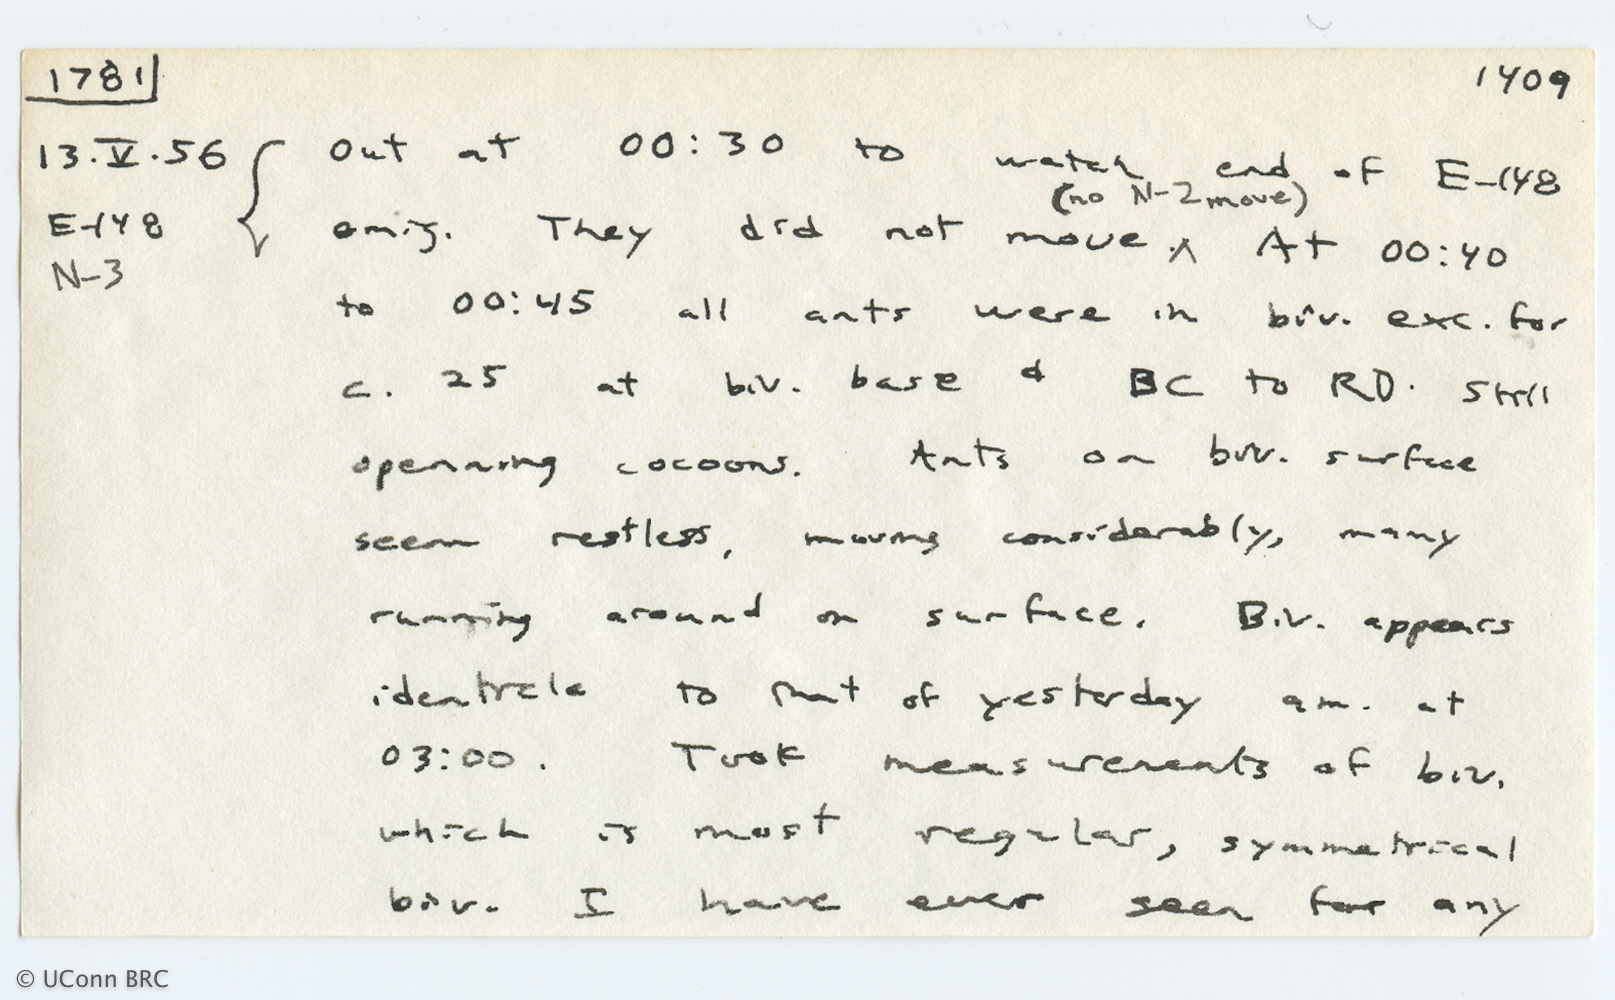 1781
1409
13.V.56 { Out at 00:30 to watch end of E-148
(no N-2 move)
E-148 emig. They did not move.^ At 00:40
N-3
to 00:45 all ants were in biv. exc. for
c. 25 at biv. base & BC to RD. Still
openning cocoons. Ants on biv. surface
seem restless, moving considerably, many
running around on surface. Biv. appears
identicle to that of yesterday am. at
03:00. Took measurements of biv.
which is most regular, symmetrical
biv. I have ever seen for any
© UConn BRC